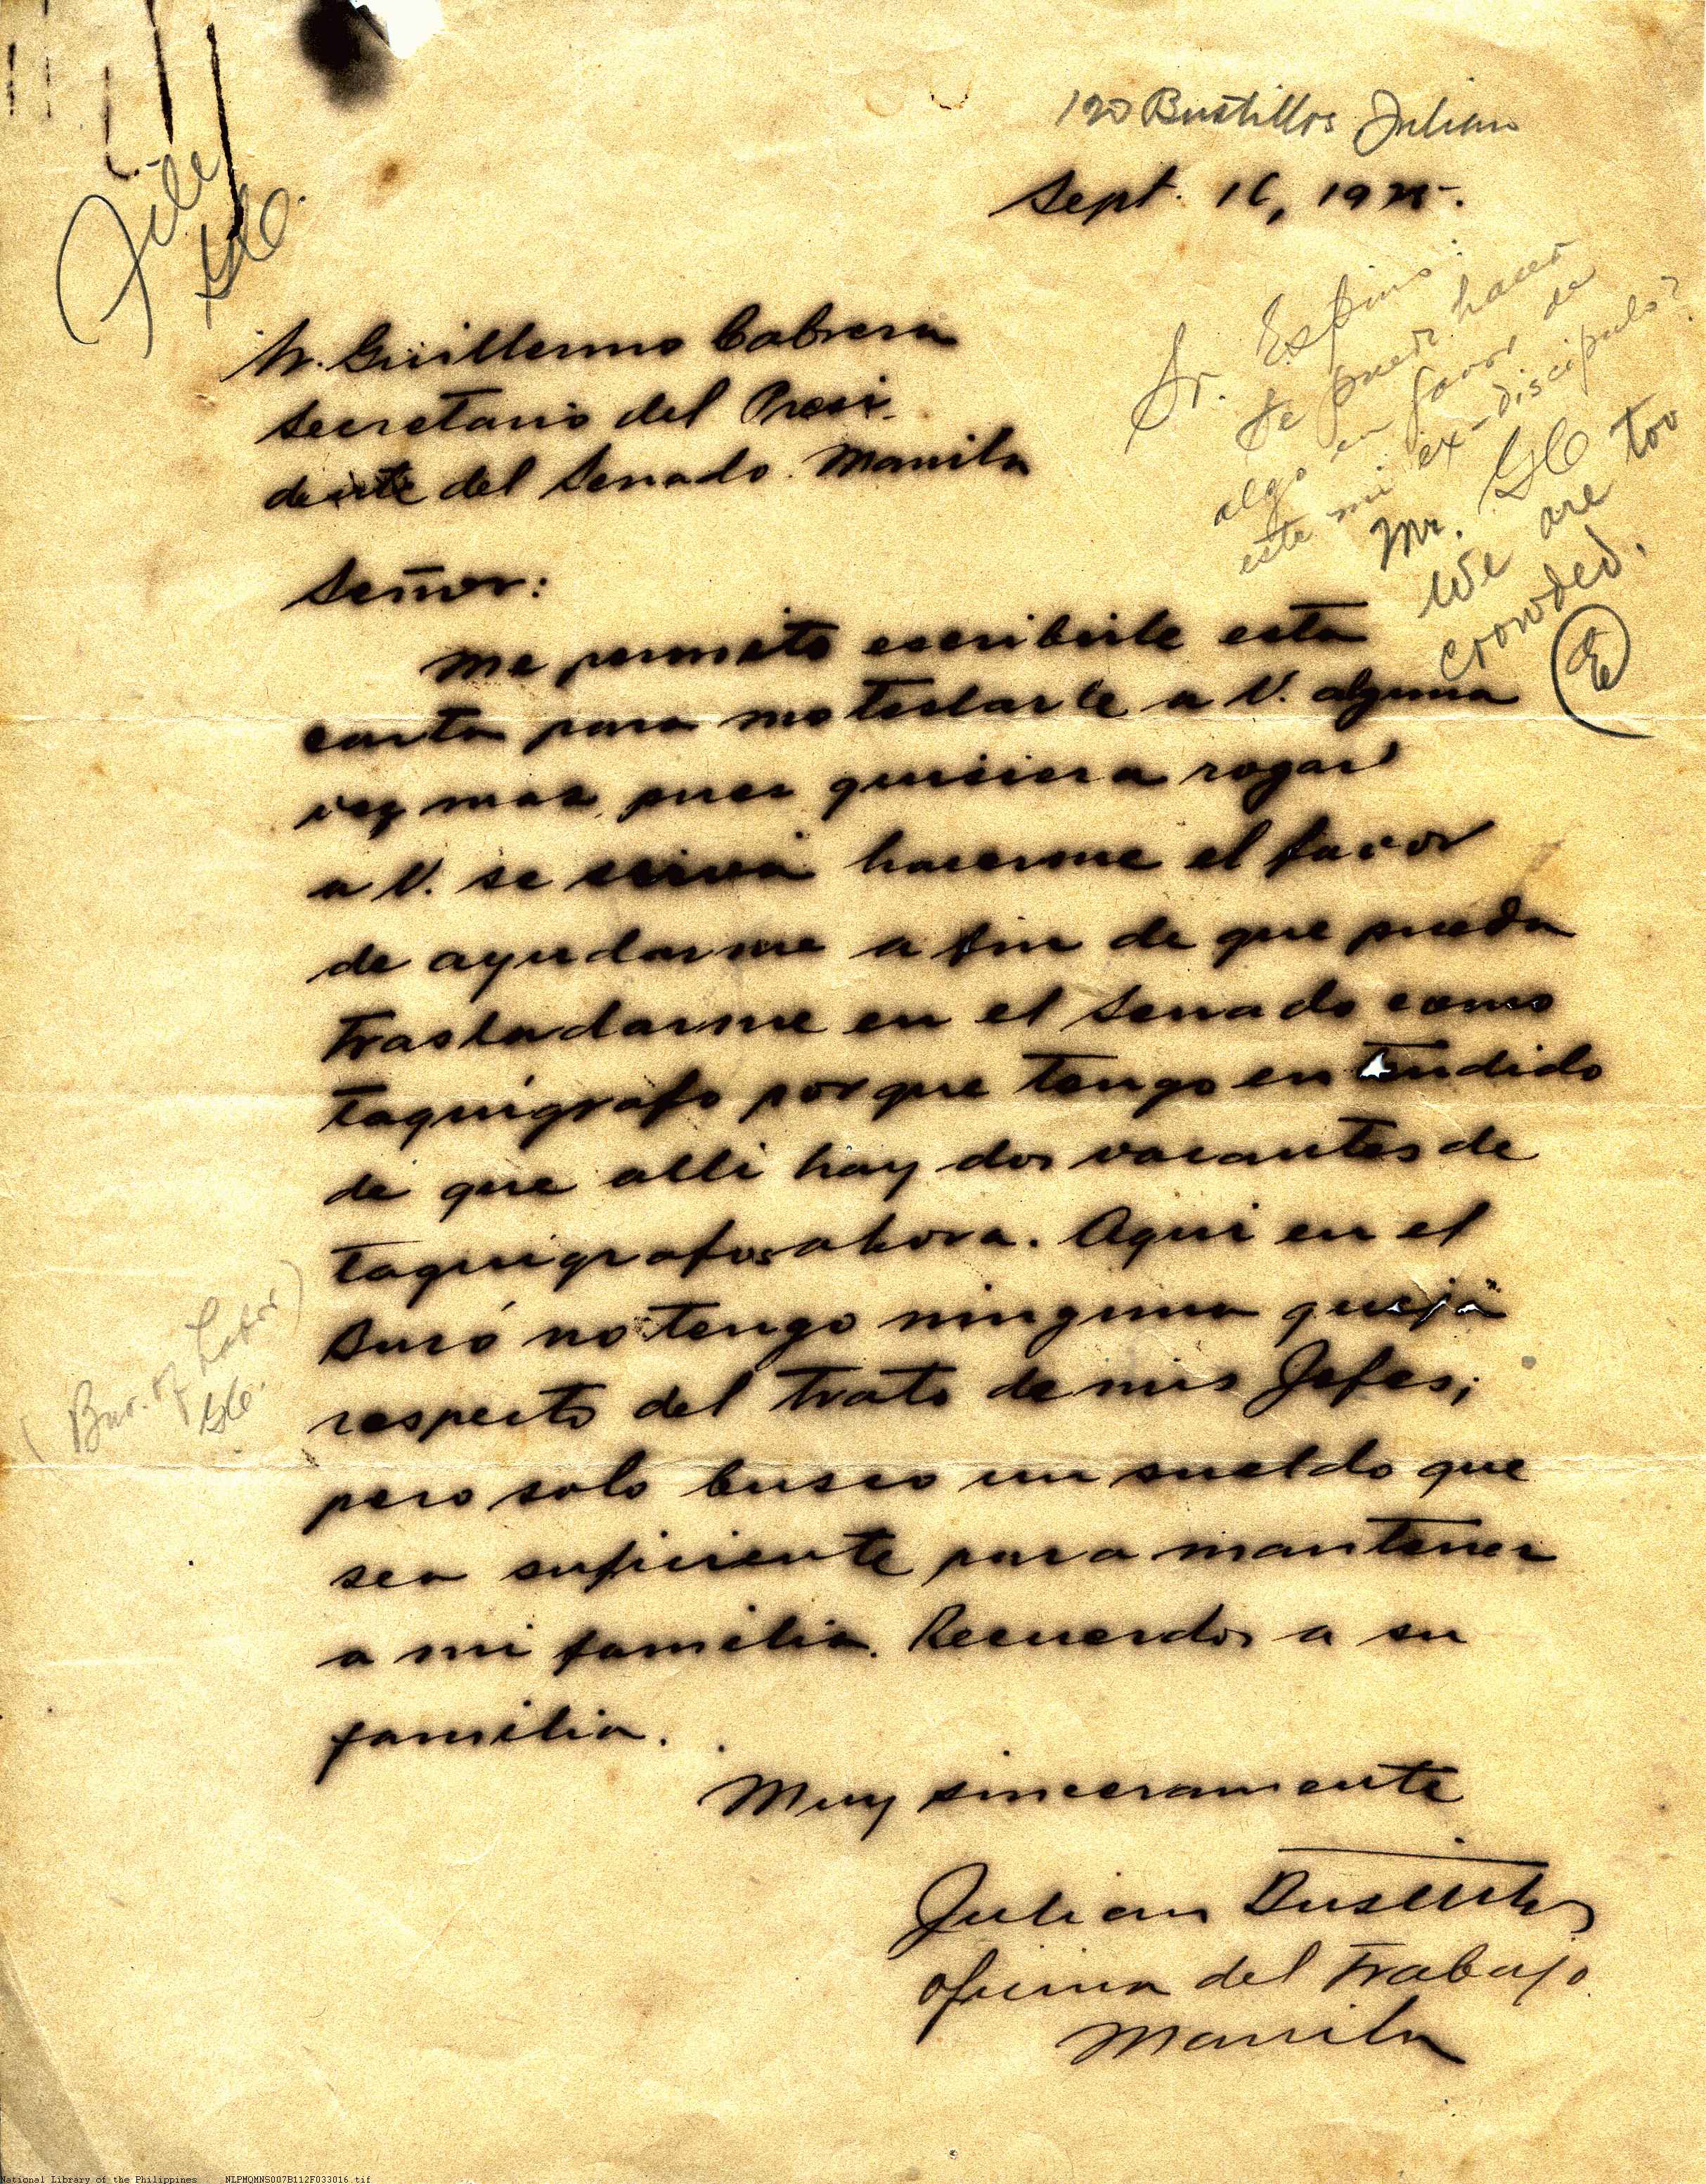 120 Bustillos Julian
Sept. 16, 192
File
GC.
Sr. Espino:
Se puede hacer
algo en favor de
este mi ex-discipulo?
GC
Mr.
We are too
crowded.
E
Mr. Guillermo Cabrera
Secretario del Presi-
dente del Senado. Manila
Señor:
Me permito escribirle esta
carta para molestarle a V. alguna
vez mas, pues quisiera rogar
a V. se sirva hacerme el favor
de ayudarme a fin de que pueda
trasladarme en el Senado como
taquígrafo porque tengo entendido
de que alli hay dos vacantes de
taquigrafos ahora. Aqui en el
Buró no tengo ninguna queja
respecto del trato de mis Jefes;
pero solo busco un sueldo que
sea suficiente para mantener
a mi familia. Recuerdos a su
familia.
(Bur. of Labor)
GC.
Muy sinceramente
Julian Bustillos
Oficina del Trabajo
Manila
National Library of the Philippines NLPMQMNS007B112F033016.tif